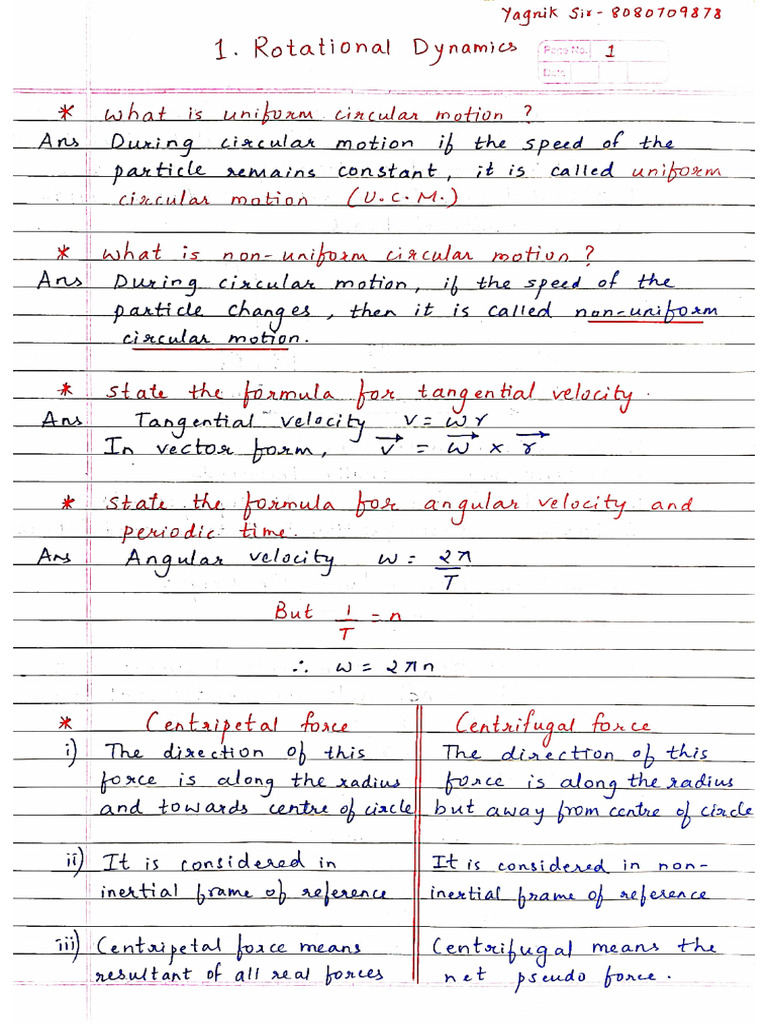 Yagnik Sir - 8080709878
1. Rotational Dynamics
Page No. 1
Date
* What is uniform circular motion ?
Ans During circular motion if the speed of the
particle remains constant, it is called uniform
circular motion (U.C.M.)
* What is non-uniform circular motion ?
Ans During circular motion, if the speed of the
particle changes, then it is called non-uniform
circular motion.
* State the formula for tangential velocity.
Ans Tangential velocity v = ωr
In vector form, v⃗ = ω⃗ × r⃗
* State the formula for angular velocity and
periodic time.
Ans Angular velocity ω = 2π/T
But 1/T = n
∴ ω = 2πn
* Centripetal force | Centrifugal force
i) The direction of this | The direction of this
force is along the radius | force is along the radius
and towards centre of circle | but away from centre of circle
ii) It is considered in | It is considered in non-
inertial frame of reference | inertial frame of reference
iii) Centripetal force means | Centrifugal means the
resultant of all real forces | net pseudo force.